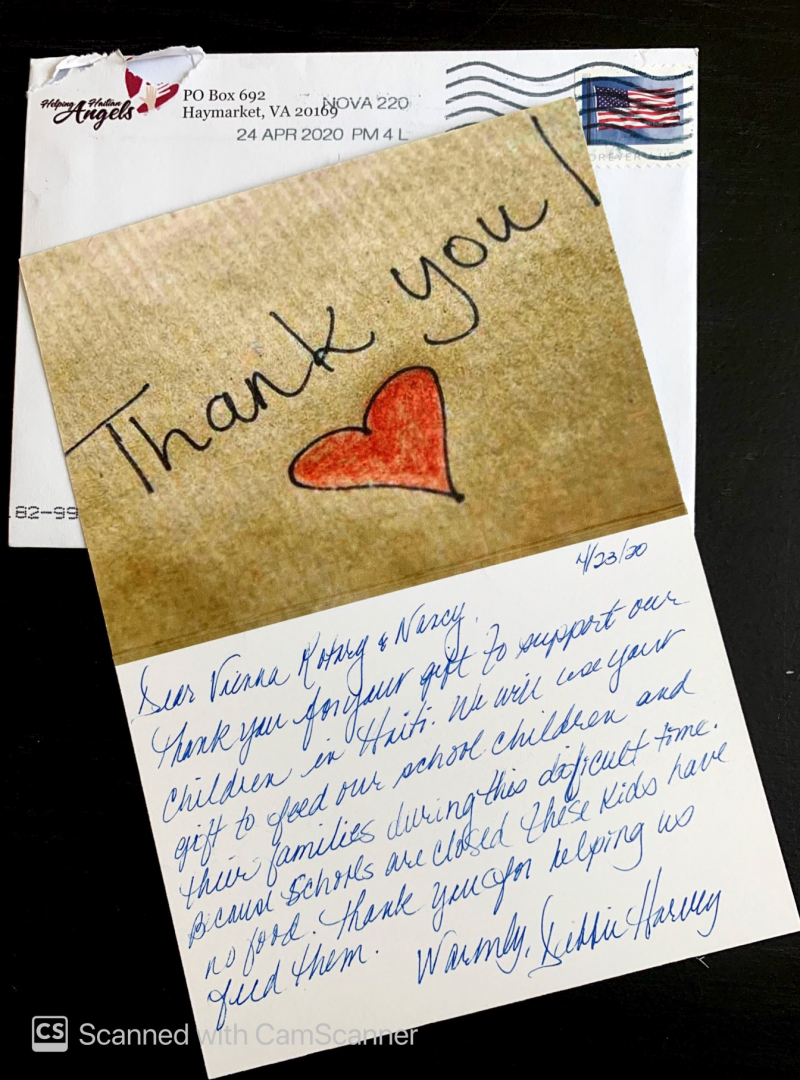 Helping Haitian
Angels
PO Box 692
Haymarket, VA 20169
NOVA 220
24 APR 2020 PM 4 L
FOREVER USA
Thank you!
82-99
4/23/20
Dear Vienna Rotary & Nancy,
Thank you for your gift to support our
children in Haiti. We will use your
gift to feed our school children and
their families during this difficult time.
Because schools are closed these kids have
no food. Thank you for helping us
feed them.
Warmly, Debbie Harvey
CS Scanned with CamScanner